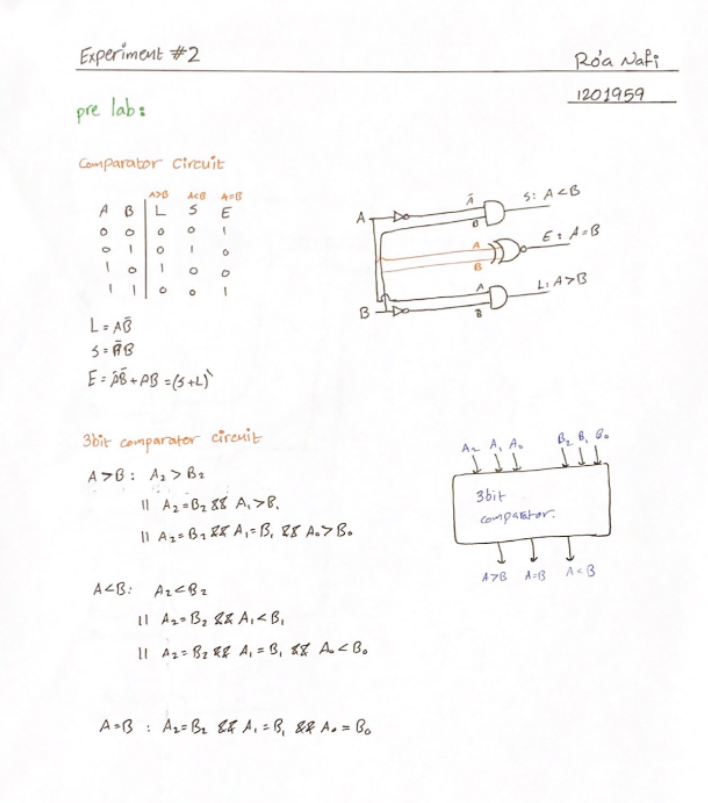 Experiment #2
Ro'a Nafi
1201959
pre lab:
Comparator Circuit
A>B A<B A=B
A B L S E
0 0 0 0 1
0 1 0 1 0
1 0 1 0 0
1 1 0 0 1
L = AB̄
S = ĀB
E = ĀB̄ + AB = (S+L)`
A
B
Ā
B
S: A<B
A
B
E: A=B
A
B̄
L: A>B
3bit comparator circuit
A>B: A₂>B₂
|| A₂=B₂ && A₁>B₁
|| A₂=B₂ && A₁=B₁ && A₀>B₀
A<B: A₂<B₂
|| A₂=B₂ && A₁<B₁
|| A₂=B₂ && A₁=B₁ && A₀<B₀
A=B : A₂=B₂ && A₁=B₁ && A₀=B₀
A₂ A₁ A₀ B₂ B₁ B₀
3bit
comparator.
A>B A=B A<B